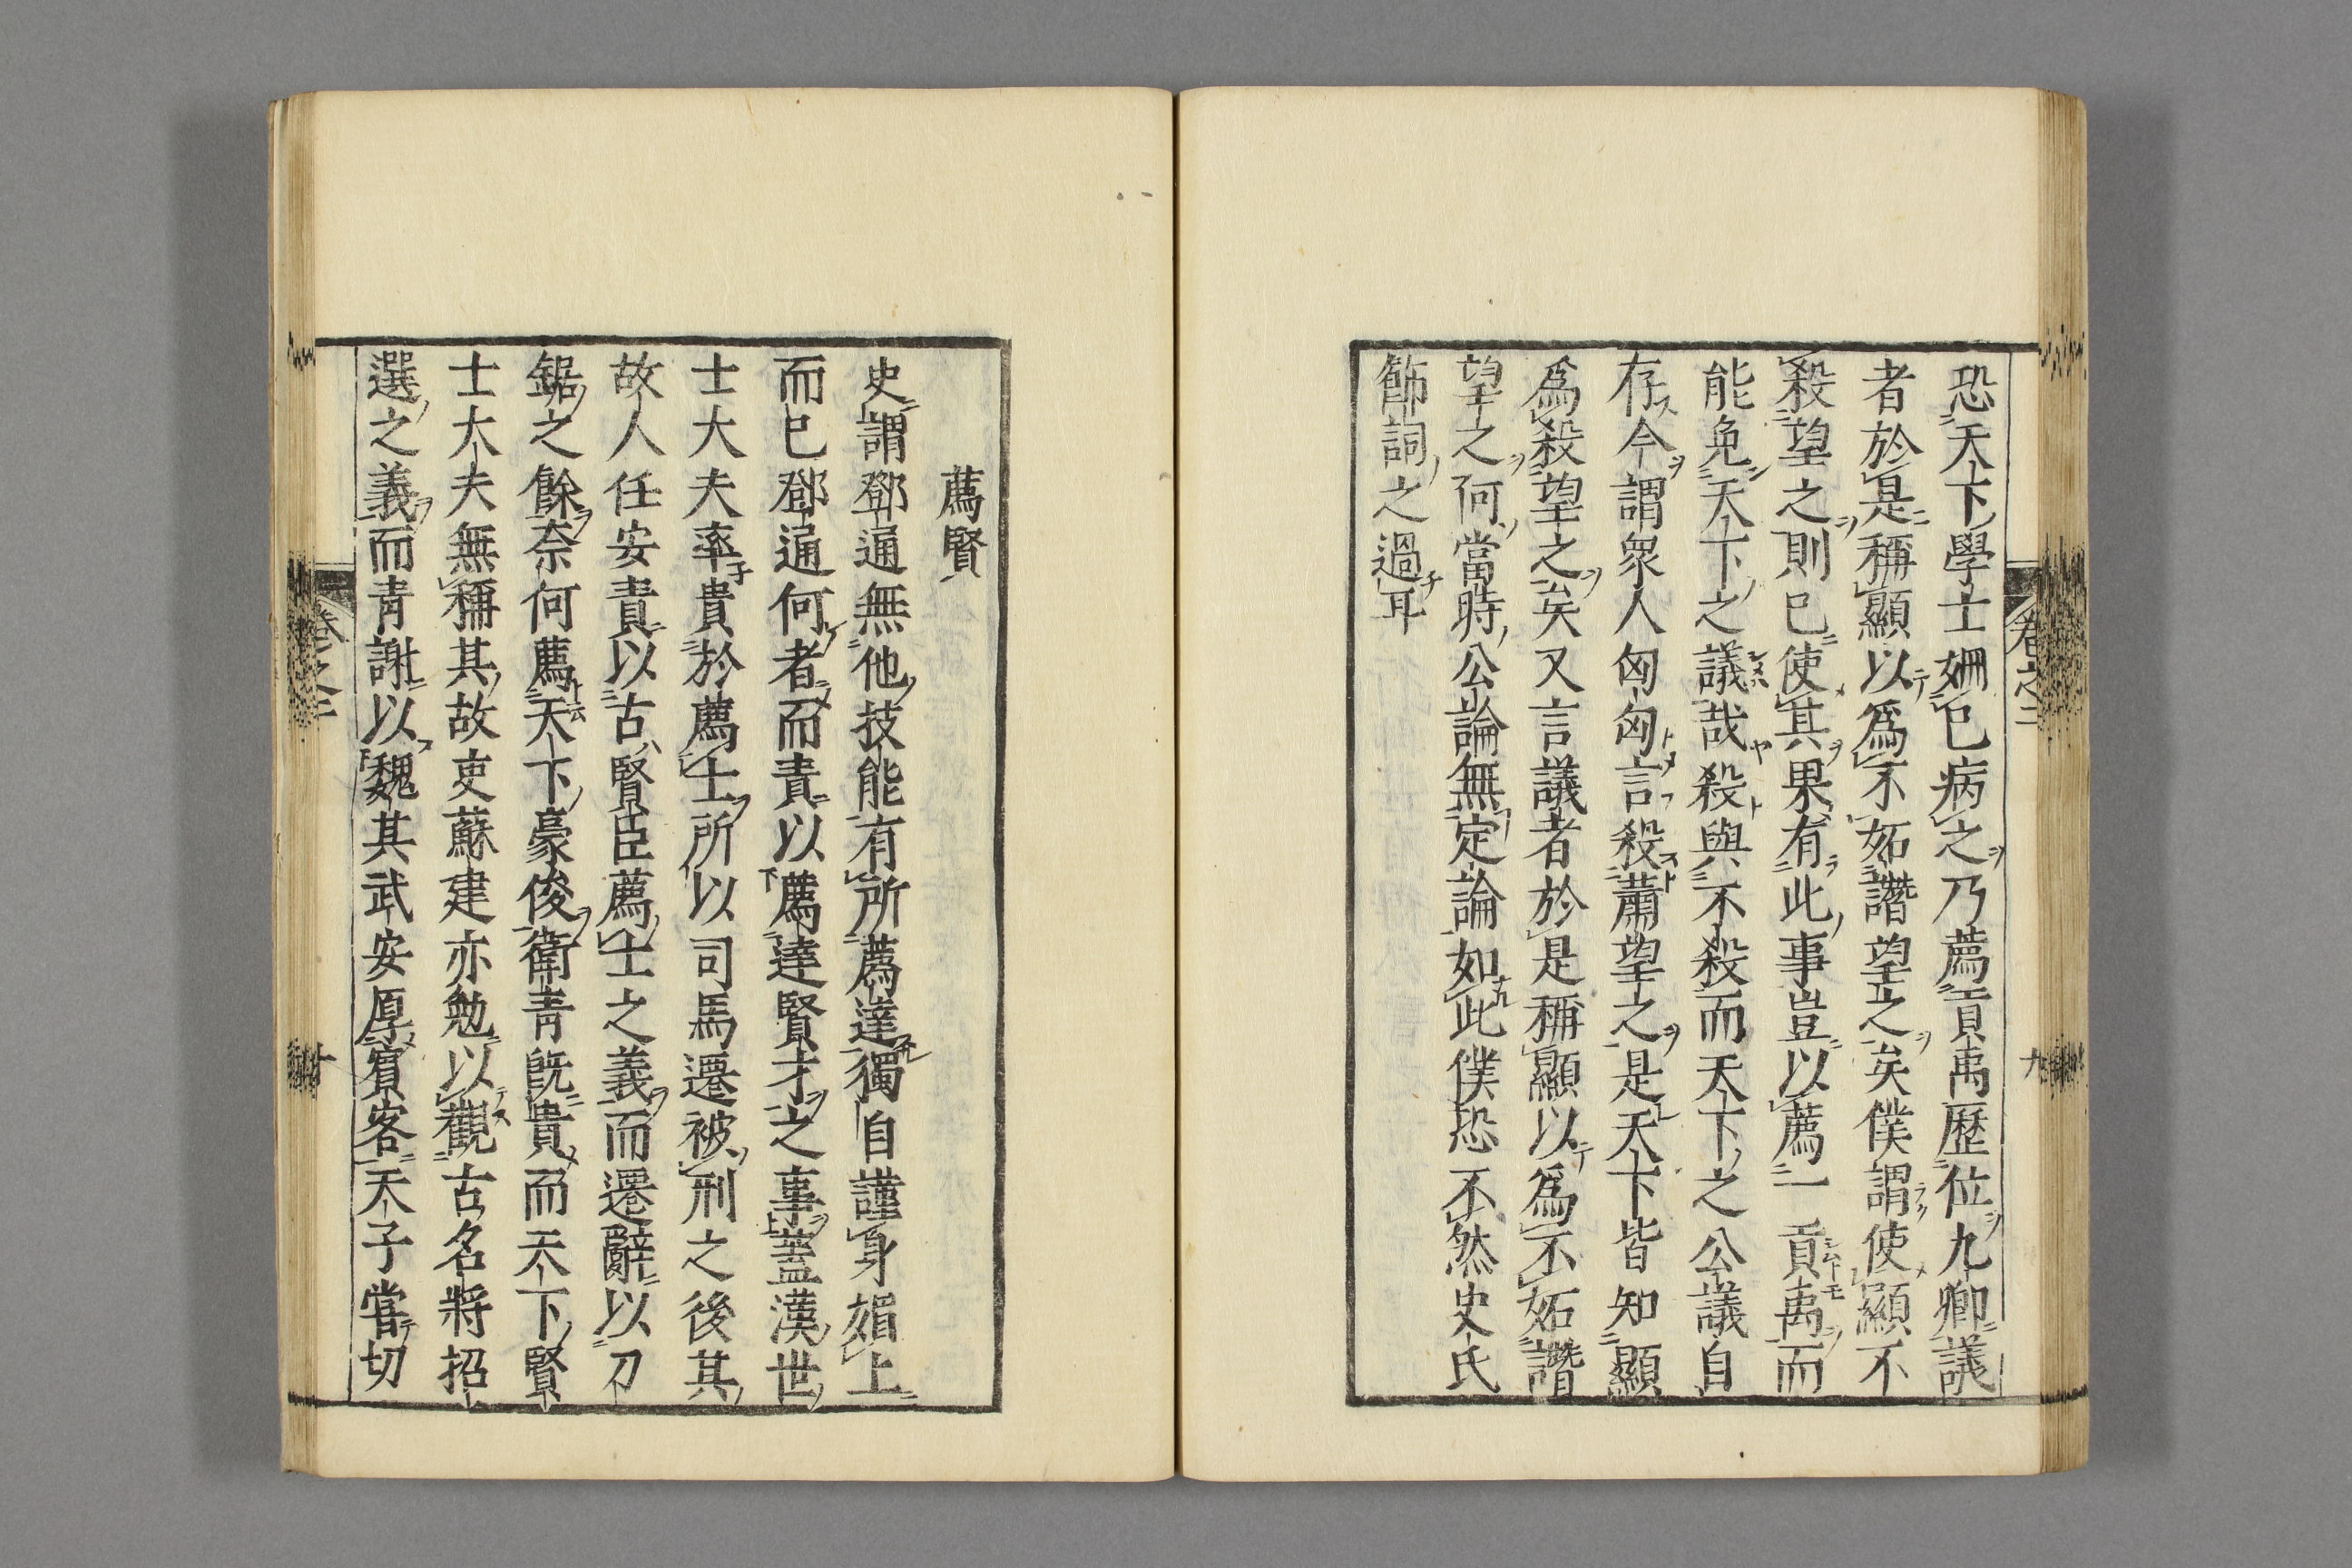 恐天下學士姍己病之乃薦貢禹歷位九卿議
者於是稱顯以爲不妬譖望之矣僕謂使顯不
殺望之則已使其果有此事豈以薦一貢禹而
能免天下之議哉殺與不殺而天下之公議自
存今謂衆人匈匈言殺蕭望之是天下皆知顯
爲殺望之矣又言議者於是稱顯以爲不妬譖
望之何當時公論無定論如此僕恐不然史氏
飾詞之過耳
卷之二
九
薦賢
史謂鄧通無他技能有所薦達獨自謹身媚上
而已鄧通何者而責以薦達賢才之事蓋漢世
士大夫率貴於薦士所以司馬遷被刑之後其
故人任安責以古賢臣薦士之義而遷辭以刀
鋸之餘奈何薦天下豪俊衛青旣貴而天下賢
士大夫無稱其故吏蘇建亦勉以觀古名將招
選之義而青謝以魏其武安厚賓客天子嘗切
卷之二
十